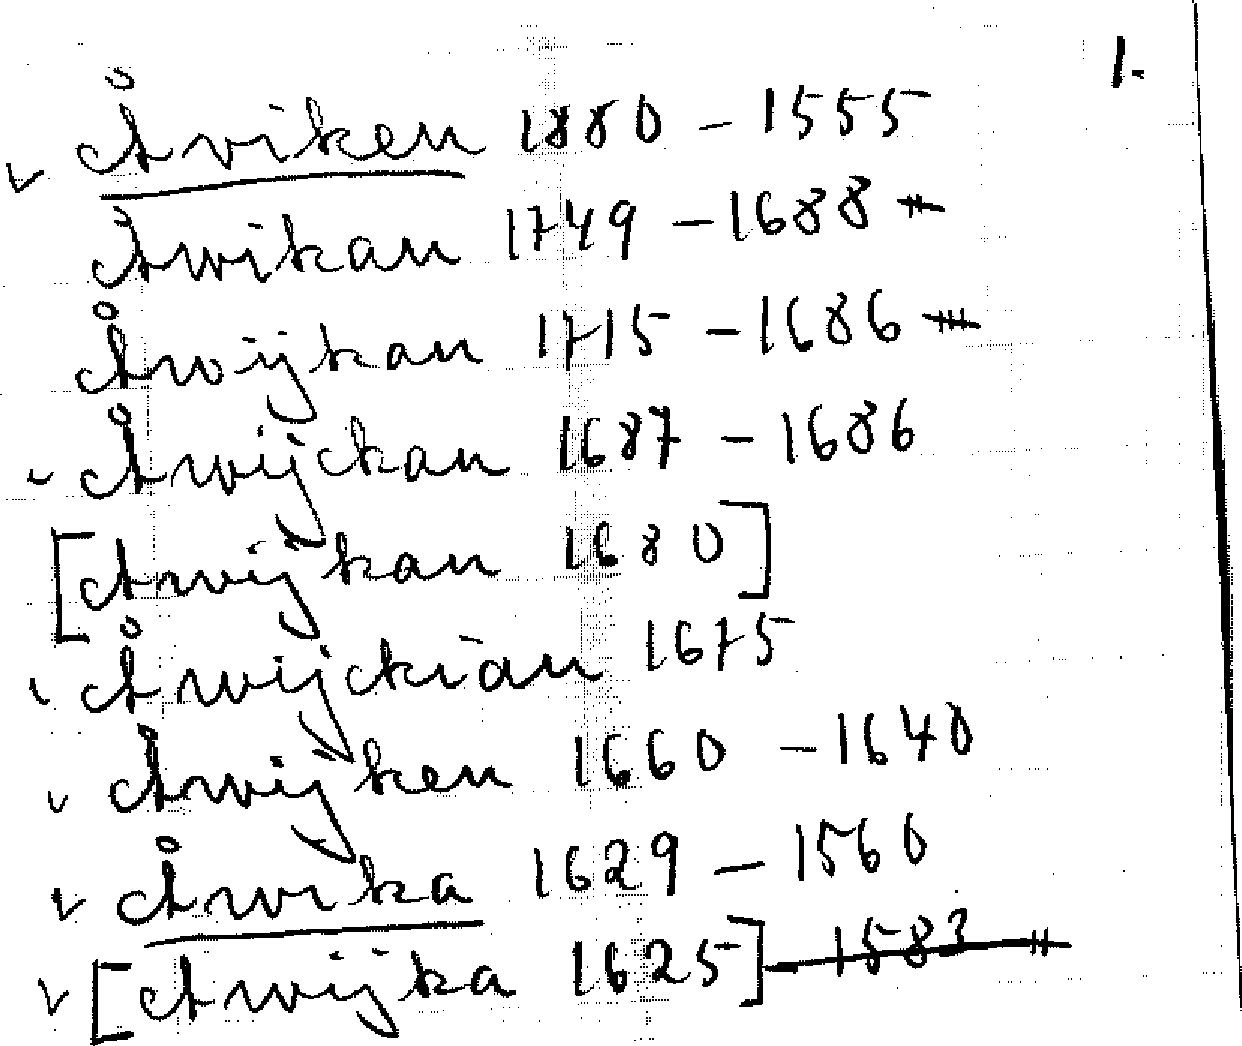 1.
Åviken 1880 – 1555
Åwikan 1749 – 1688
Åwijkan 1715 – 1686
Åwijckan 1687 – 1686
[Awijkan 1680]
Åwijckian 1675
Åwijken 1660 – 1640
Åwika 1629 – 1560
[Awijka 1625] – 1583